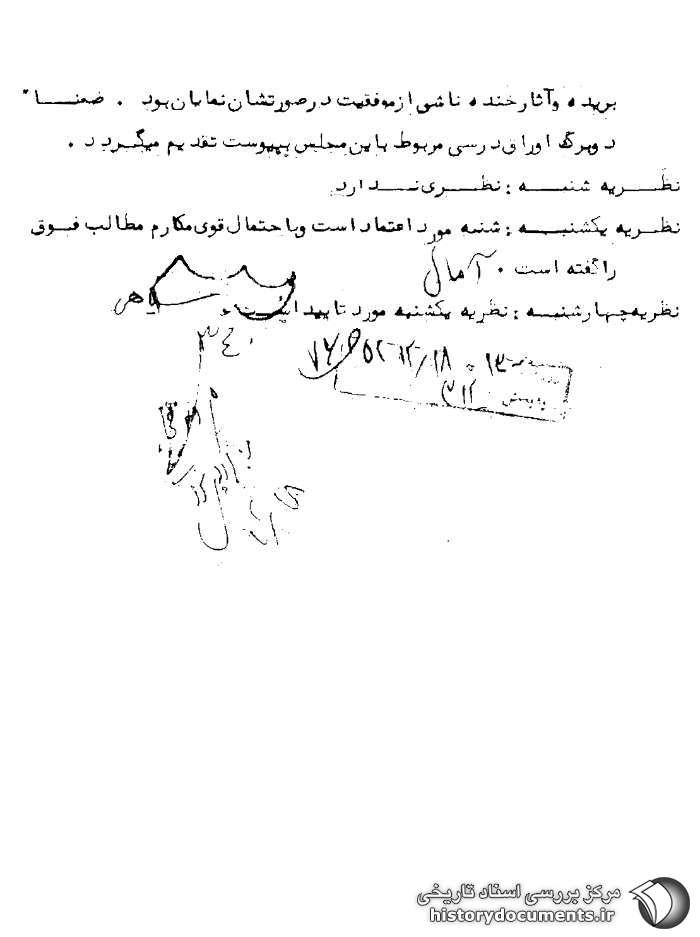 بریده وآثار خنده ناشی از موفقیت در صورتشان نمایان بود . ضمنــا "
دوبرگ اوراق درسی مربوط باین مجلس بپیوست تقدیم میگردد .
نظــریه شنبــه : نظــری نــدارد
نظــریه یکشنبــه : شنبه مورد اعتماد است وبا حتمال قوی مکارم مطالب فــوق
را گفته است . آمال
نظریه چهارشنبــه : نظریه یکشنبه مورد تایید است .
۳۴۰
۱۳ . ۵۲/۱۲/۱۸
۳۱۲
مرکز بررسی اسناد تاریخی
historydocuments.ir